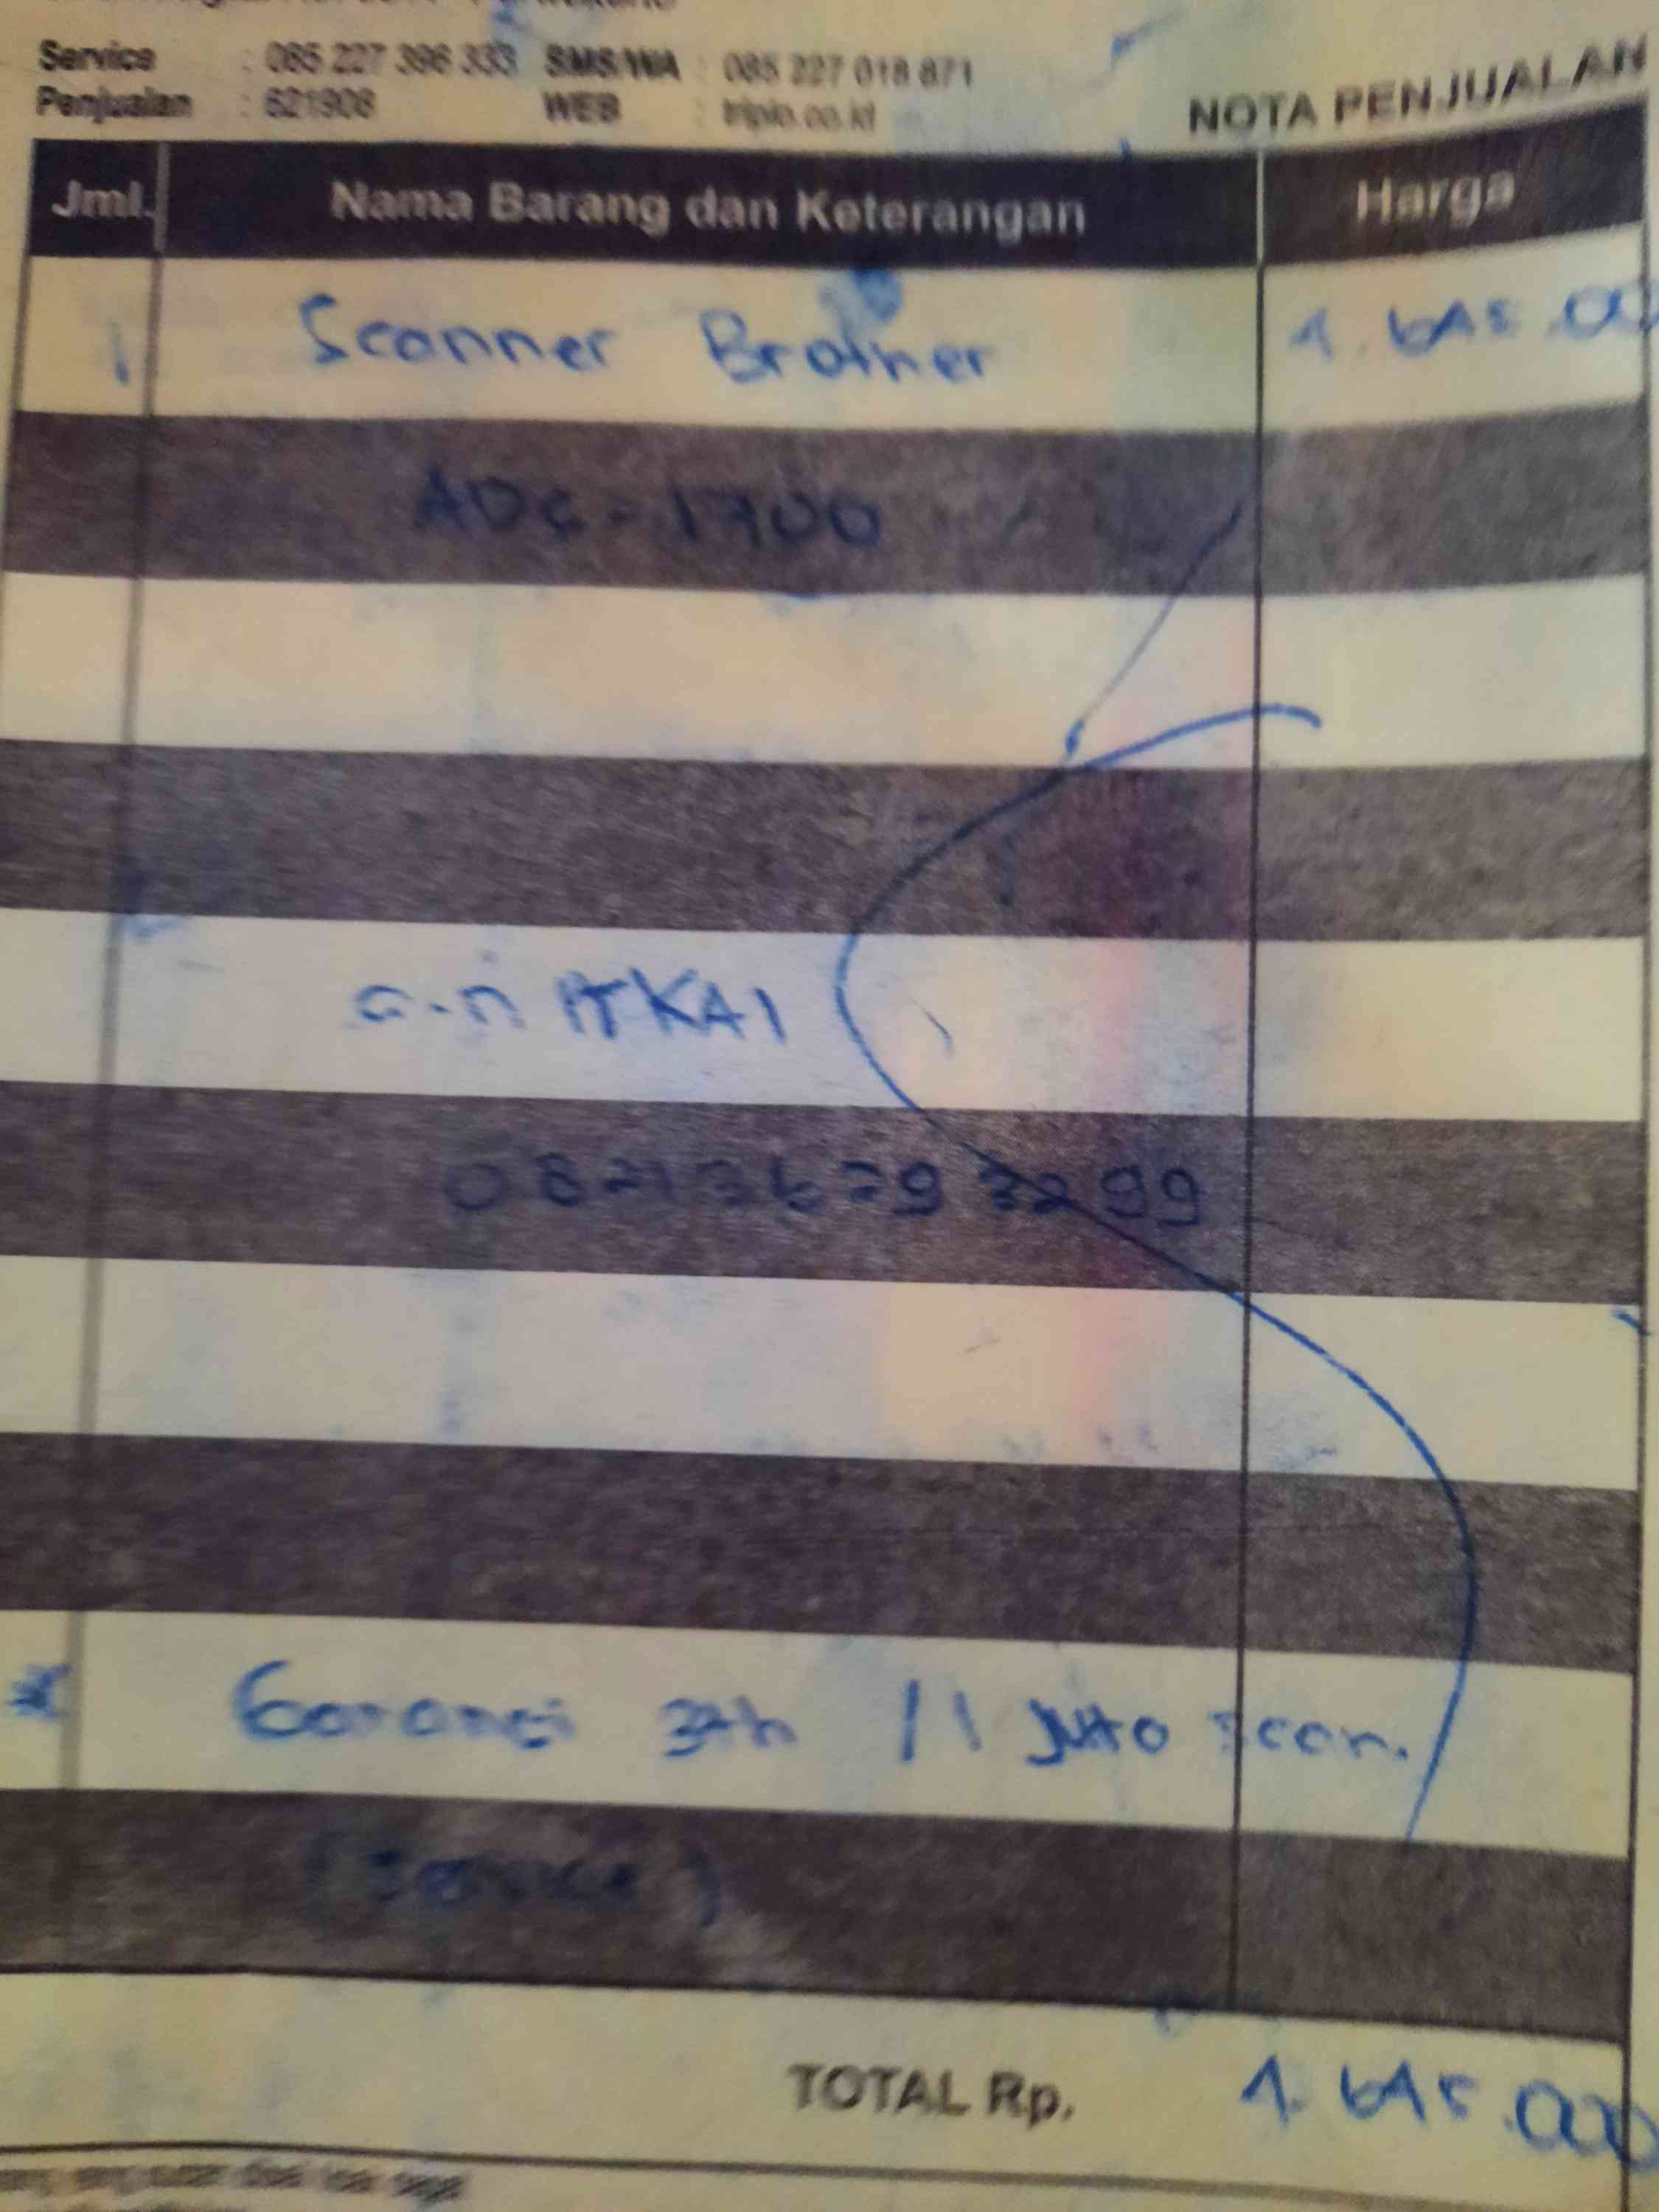 Service : 085 227 396 333 SMS/WA : 085 227 018 871
Penjualan : 621908 WEB : triplo.co.id
NOTA PENJUALAN
Jml. Nama Barang dan Keterangan Harga
1 Scanner Brother 4.645.00
ADS-1700
a.n PT KAI
0821 3679 3299
* Garansi 3th / 1 juta scan.
(Service)
TOTAL Rp. 4.645.000